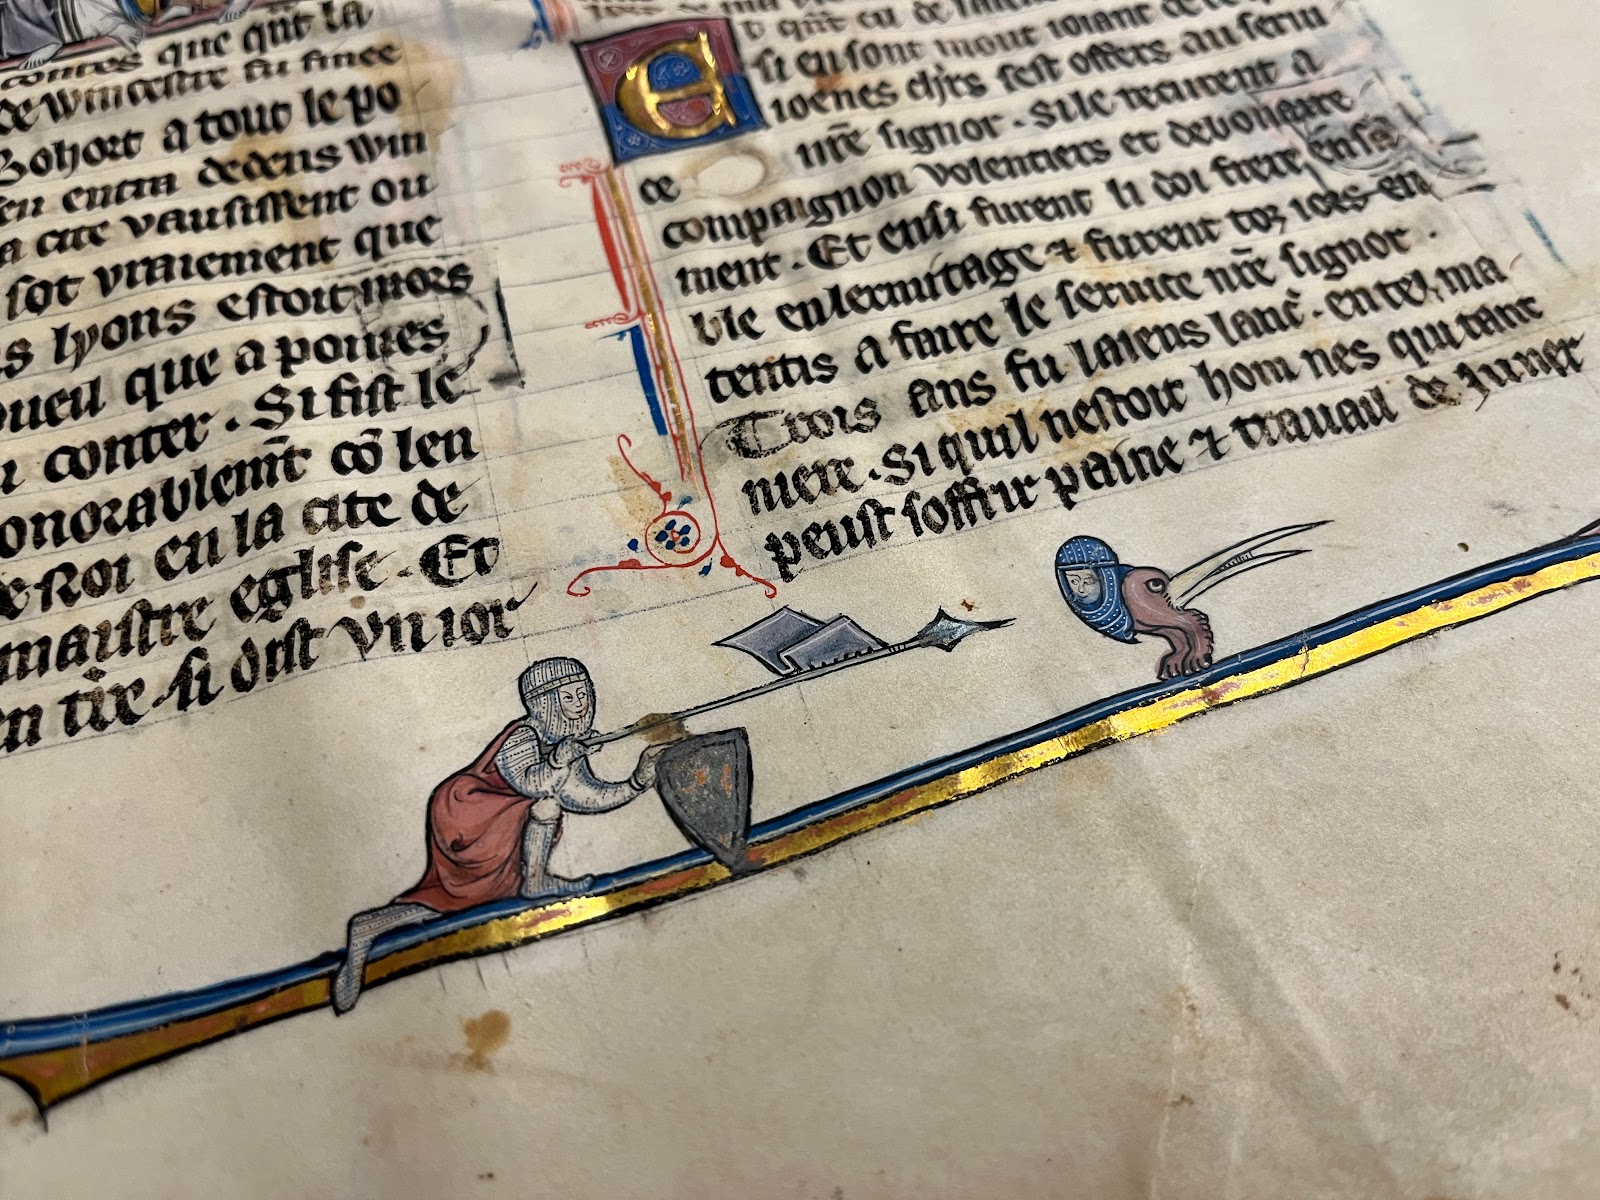 contes que qñt la
de wincestre fu finee
Bohort a tout le po
en entra dedens win
a cite vausissent ou
sot vraiement que
s lyons estoit mors
oueil que a poines
conter . Si fist le
onorablemt̃ cõ len
Roi en la cite de
maistre eglise . Et
en tire si dist vn ior
si en sont mout ioiant de ce
ioenes chrs sest offers au serui
ce nr̃e signor . Si le recurent a
compaignon volentiers et debonaire
ment . Et ensi furent li doi frere ensã
ble en lermitage ⁊ furent toz iors en
tentis a faire le seruice nr̃e signor .
Trois ans fu laiens lanc̃ . en tel ma
niere . Si quil nestoit hom nes qui tant
peust soffrir paine ⁊ trauail de iuner